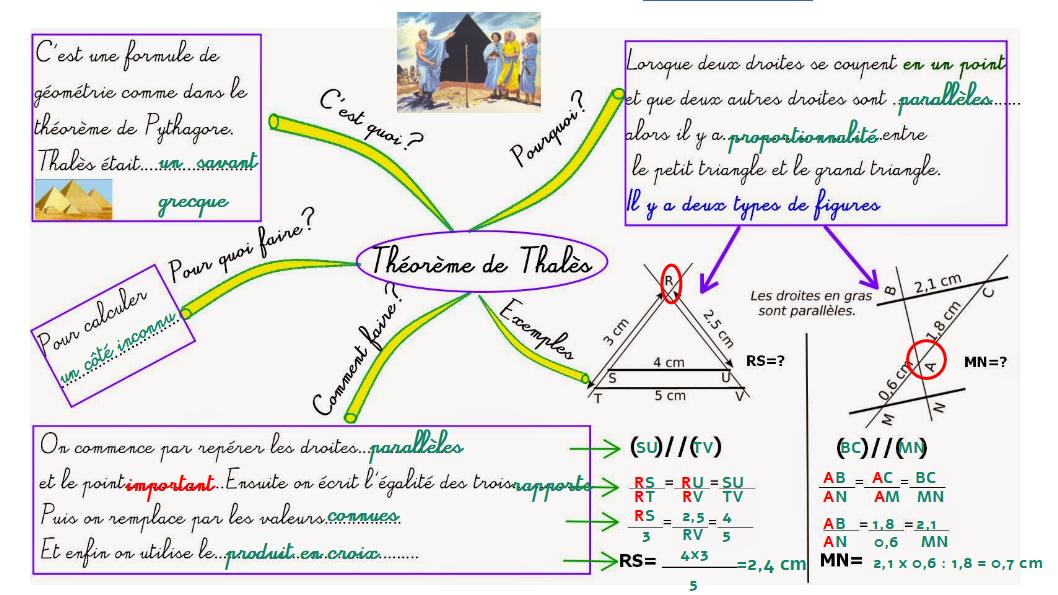 C'est une formule de
géométrie comme dans le
théorème de Pythagore.
Thalès était....un savant
grecque
C'est quoi ?
Pourquoi ?
Lorsque deux droites se coupent en un point
et que deux autres droites sont ..parallèles......
alors il y a..proportionnalité.entre
le petit triangle et le grand triangle.
Il y a deux types de figures
Pour quoi faire ?
Pour calculer
un côté inconnu
Théorème de Thalès
Comment faire ?
Exemples
R
3 cm
2,5 cm
4 cm
S
U
T
5 cm
V
RS=?
Les droites en gras
sont parallèles.
B
2,1 cm
C
1,8 cm
A
0,6 cm
M
N
MN=?
On commence par repérer les droites...parallèles
et le point.important..Ensuite on écrit l'égalité des trois.rapports
Puis on remplace par les valeurs.connues.
Et enfin on utilise le...produit en croix.........
(SU)//(TV)
RS/RT = RU/RV = SU/TV
RS/3 = 2,5/RV = 4/5
RS= 4×3/5 =2,4 cm
(BC)//(MN)
AB/AN = AC/AM = BC/MN
AB/AN = 1,8/0,6 = 2,1/MN
MN= 2,1 x 0,6 : 1,8 = 0,7 cm